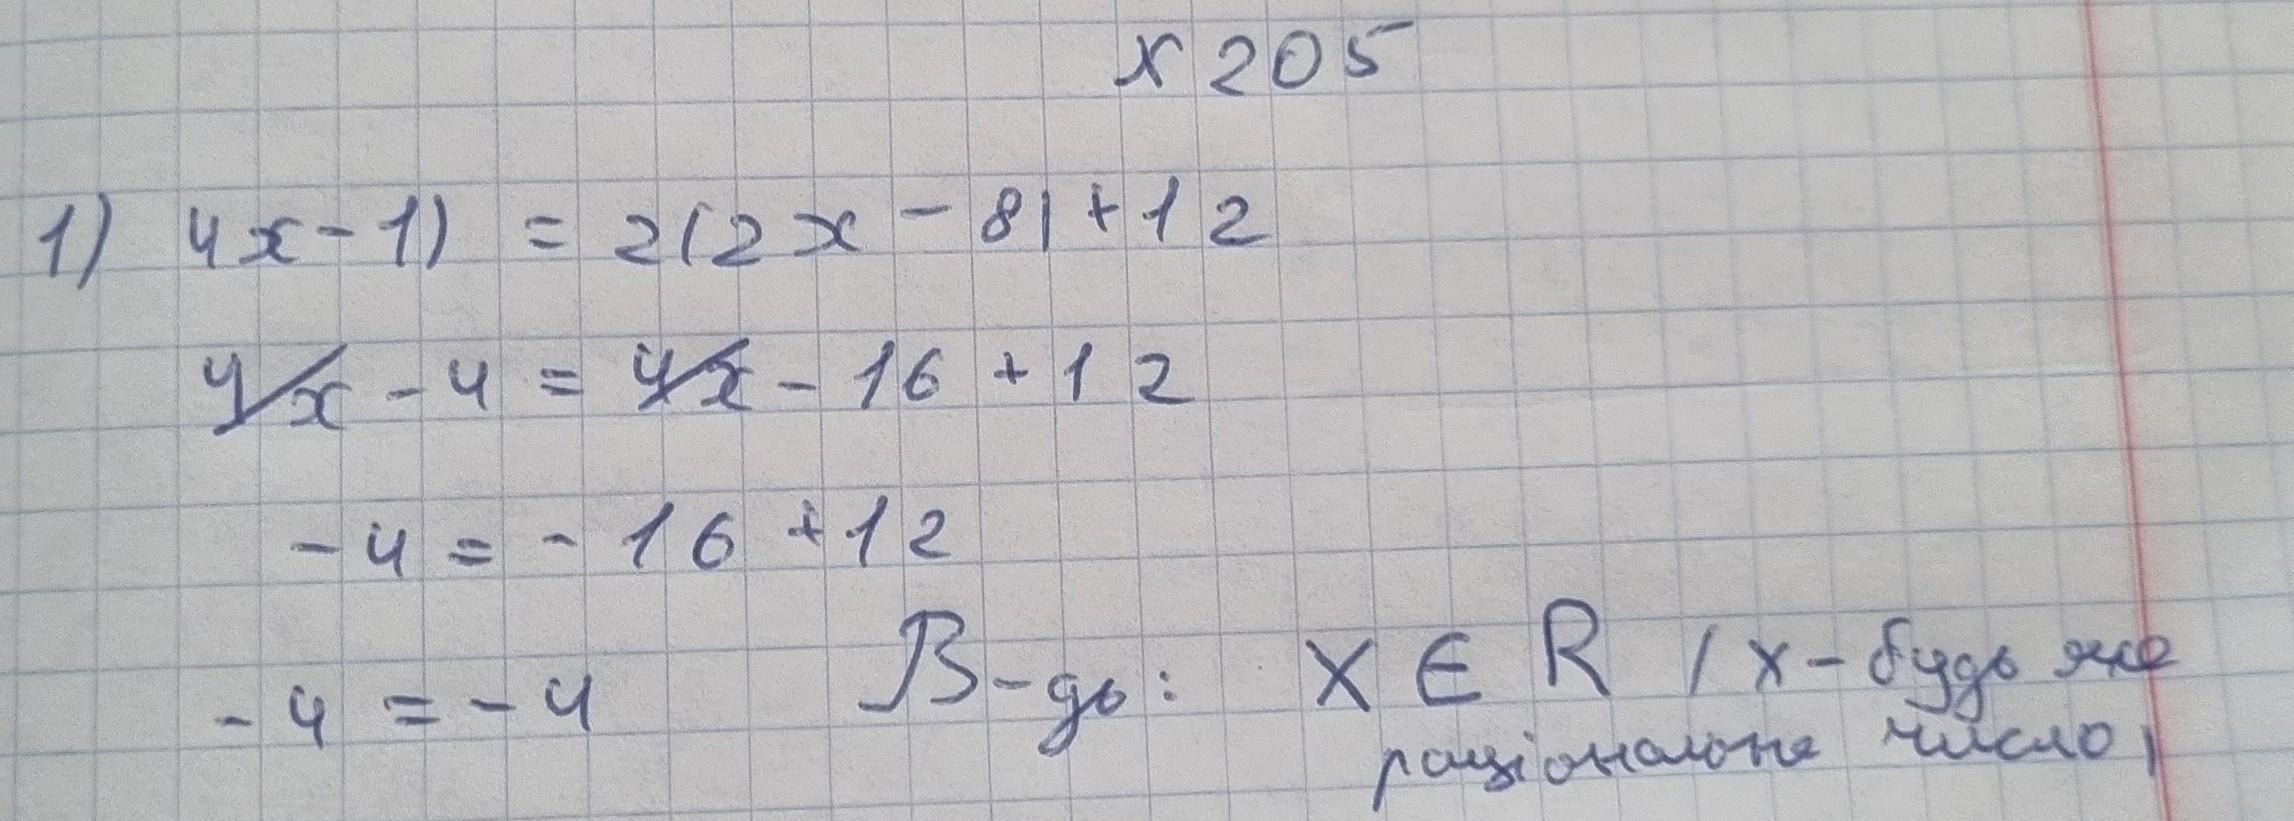 № 205
1) 4x - 1) = 2(2x - 8) + 12
4x - 4 = 4x - 16 + 12
- 4 = - 16 + 12
- 4 = - 4 В-дь: X ∈ R (x - будь яке
раціональне число)